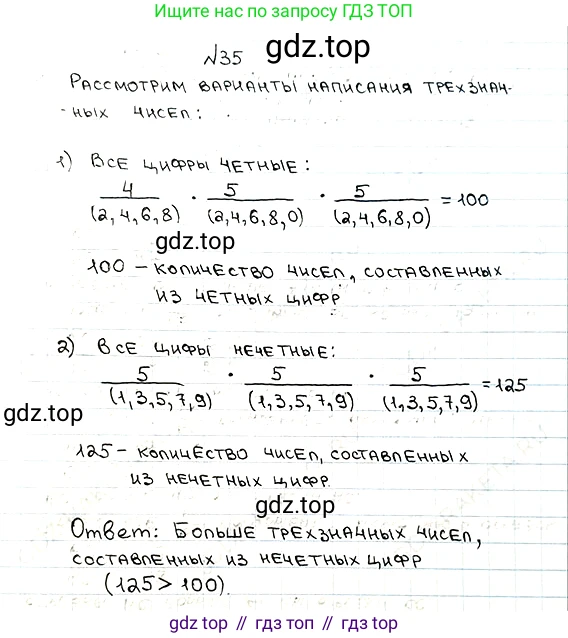 Ищите нас по запросу ГДЗ ТОП
№35
gdz.top
Рассмотрим варианты написания трехзнач-
-ных чисел:
1) Все цифры четные:
4/(2,4,6,8) · 5/(2,4,6,8,0) · 5/(2,4,6,8,0) = 100
gdz.top
100 – количество чисел, составленных
из четных цифр
2) Все цифры нечетные:
5/(1,3,5,7,9) · 5/(1,3,5,7,9) · 5/(1,3,5,7,9) = 125
gdz.top
125 – количество чисел, составленных
из нечетных цифр
gdz.top
Ответ: Больше трехзначных чисел,
составленных из нечетных цифр
(125 > 100)
gdz.top // гдз.топ // gdz.top